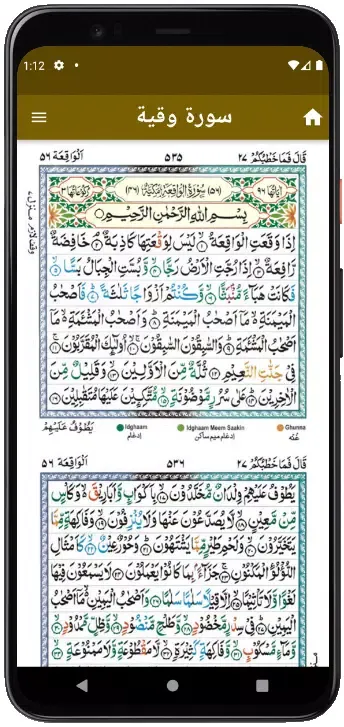 1:12
سورة وقية
اَلْوَاقِعَة ٥٦
٥٣٥
قَالَ فَمَا خَطْبُكُمْ ٢٧
اٰيَاتُهَا ٩٦
(٥٦) سُوْرَةُ الْوَاقِعَةِ مَكِّيَّةٌ (٤٦)
رُكُوْعَاتُهَا ٣
بِسْمِ اللّٰهِ الرَّحْمٰنِ الرَّحِيْمِ
اِذَا وَقَعَتِ الْوَاقِعَةُ ۙ﴿١﴾ لَيْسَ لِوَقْعَتِهَا كَاذِبَةٌ ۘ﴿٢﴾ خَافِضَةٌ
رَّافِعَةٌ ۙ﴿٣﴾ اِذَا رُجَّتِ الْاَرْضُ رَجًّا ۙ﴿٤﴾ وَّبُسَّتِ الْجِبَالُ بَسًّا ۙ﴿٥﴾
فَكَانَتْ هَبَآءً مُّنْۢبَثًّا ۙ﴿٦﴾ وَّكُنْتُمْ اَزْوَاجًا ثَلٰثَةً ؕ﴿٧﴾ فَاَصْحٰبُ
الْمَيْمَنَةِ ۙ۬ مَاۤ اَصْحٰبُ الْمَيْمَنَةِ ؕ﴿٨﴾ وَاَصْحٰبُ الْمَشْـَٔمَةِ ۙ۬ مَاۤ
اَصْحٰبُ الْمَشْـَٔمَةِ ؕ﴿٩﴾ وَالسّٰبِقُوْنَ السّٰبِقُوْنَ ۚۙ﴿١٠﴾ اُولٰٓئِكَ الْمُقَرَّبُوْنَ ۚ﴿١١﴾
فِيْ جَنّٰتِ النَّعِيْمِ ﴿١٢﴾ ثُلَّةٌ مِّنَ الْاَوَّلِيْنَ ۙ﴿١٣﴾ وَقَلِيْلٌ مِّنَ
الْاٰخِرِيْنَ ؕ﴿١٤﴾ عَلٰى سُرُرٍ مَّوْضُوْنَةٍ ۙ﴿١٥﴾ مُّتَّكِـِٕيْنَ عَلَيْهَا مُتَقٰبِلِيْنَ ﴿١٦﴾
يَطُوْفُ عَلَيْهِمْ
Idghaam
ادغام
Idghaam Meem Saakin
ادغام میم ساکن
Ghunna
غنّه
اَلْوَاقِعَة ٥٦
٥٣٦
قَالَ فَمَا خَطْبُكُمْ ٢٧
يَطُوْفُ عَلَيْهِمْ وِلْدَانٌ مُّخَلَّدُوْنَ ۙ﴿١٧﴾ بِاَكْوَابٍ وَّاَبَارِيْقَ ۙ۬ وَكَاْسٍ
مِّنْ مَّعِيْنٍ ۙ﴿١٨﴾ لَّا يُصَدَّعُوْنَ عَنْهَا وَلَا يُنْزِفُوْنَ ۙ﴿١٩﴾ وَفَاكِهَةٍ مِّمَّا
يَتَخَيَّرُوْنَ ۙ﴿٢٠﴾ وَلَحْمِ طَيْرٍ مِّمَّا يَشْتَهُوْنَ ؕ﴿٢١﴾ وَحُوْرٌ عِيْنٌ ۙ﴿٢٢﴾ كَاَمْثَالِ
اللُّؤْلُؤِ الْمَكْنُوْنِ ۚ﴿٢٣﴾ جَزَآءًۢ بِمَا كَانُوْا يَعْمَلُوْنَ ﴿٢٤﴾ لَا يَسْمَعُوْنَ فِيْهَا
لَغْوًا وَّلَا تَاْثِيْمًا ۙ﴿٢٥﴾ اِلَّا قِيْلًا سَلٰمًا سَلٰمًا ﴿٢٦﴾ وَاَصْحٰبُ الْيَمِيْنِ ۙ۬ مَاۤ اَصْحٰبُ
الْيَمِيْنِ ؕ﴿٢٧﴾ فِيْ سِدْرٍ مَّخْضُوْدٍ ۙ﴿٢٨﴾ وَّطَلْحٍ مَّنْضُوْدٍ ۙ﴿٢٩﴾ وَّظِلٍّ مَّمْدُوْدٍ ۙ﴿٣٠﴾
وَّمَآءٍ مَّسْكُوْبٍ ۙ﴿٣١﴾ وَّفَاكِهَةٍ كَثِيْرَةٍ ۙ﴿٣٢﴾ لَّا مَقْطُوْعَةٍ وَّلَا مَمْنُوْعَةٍ ۙ﴿٣٣﴾